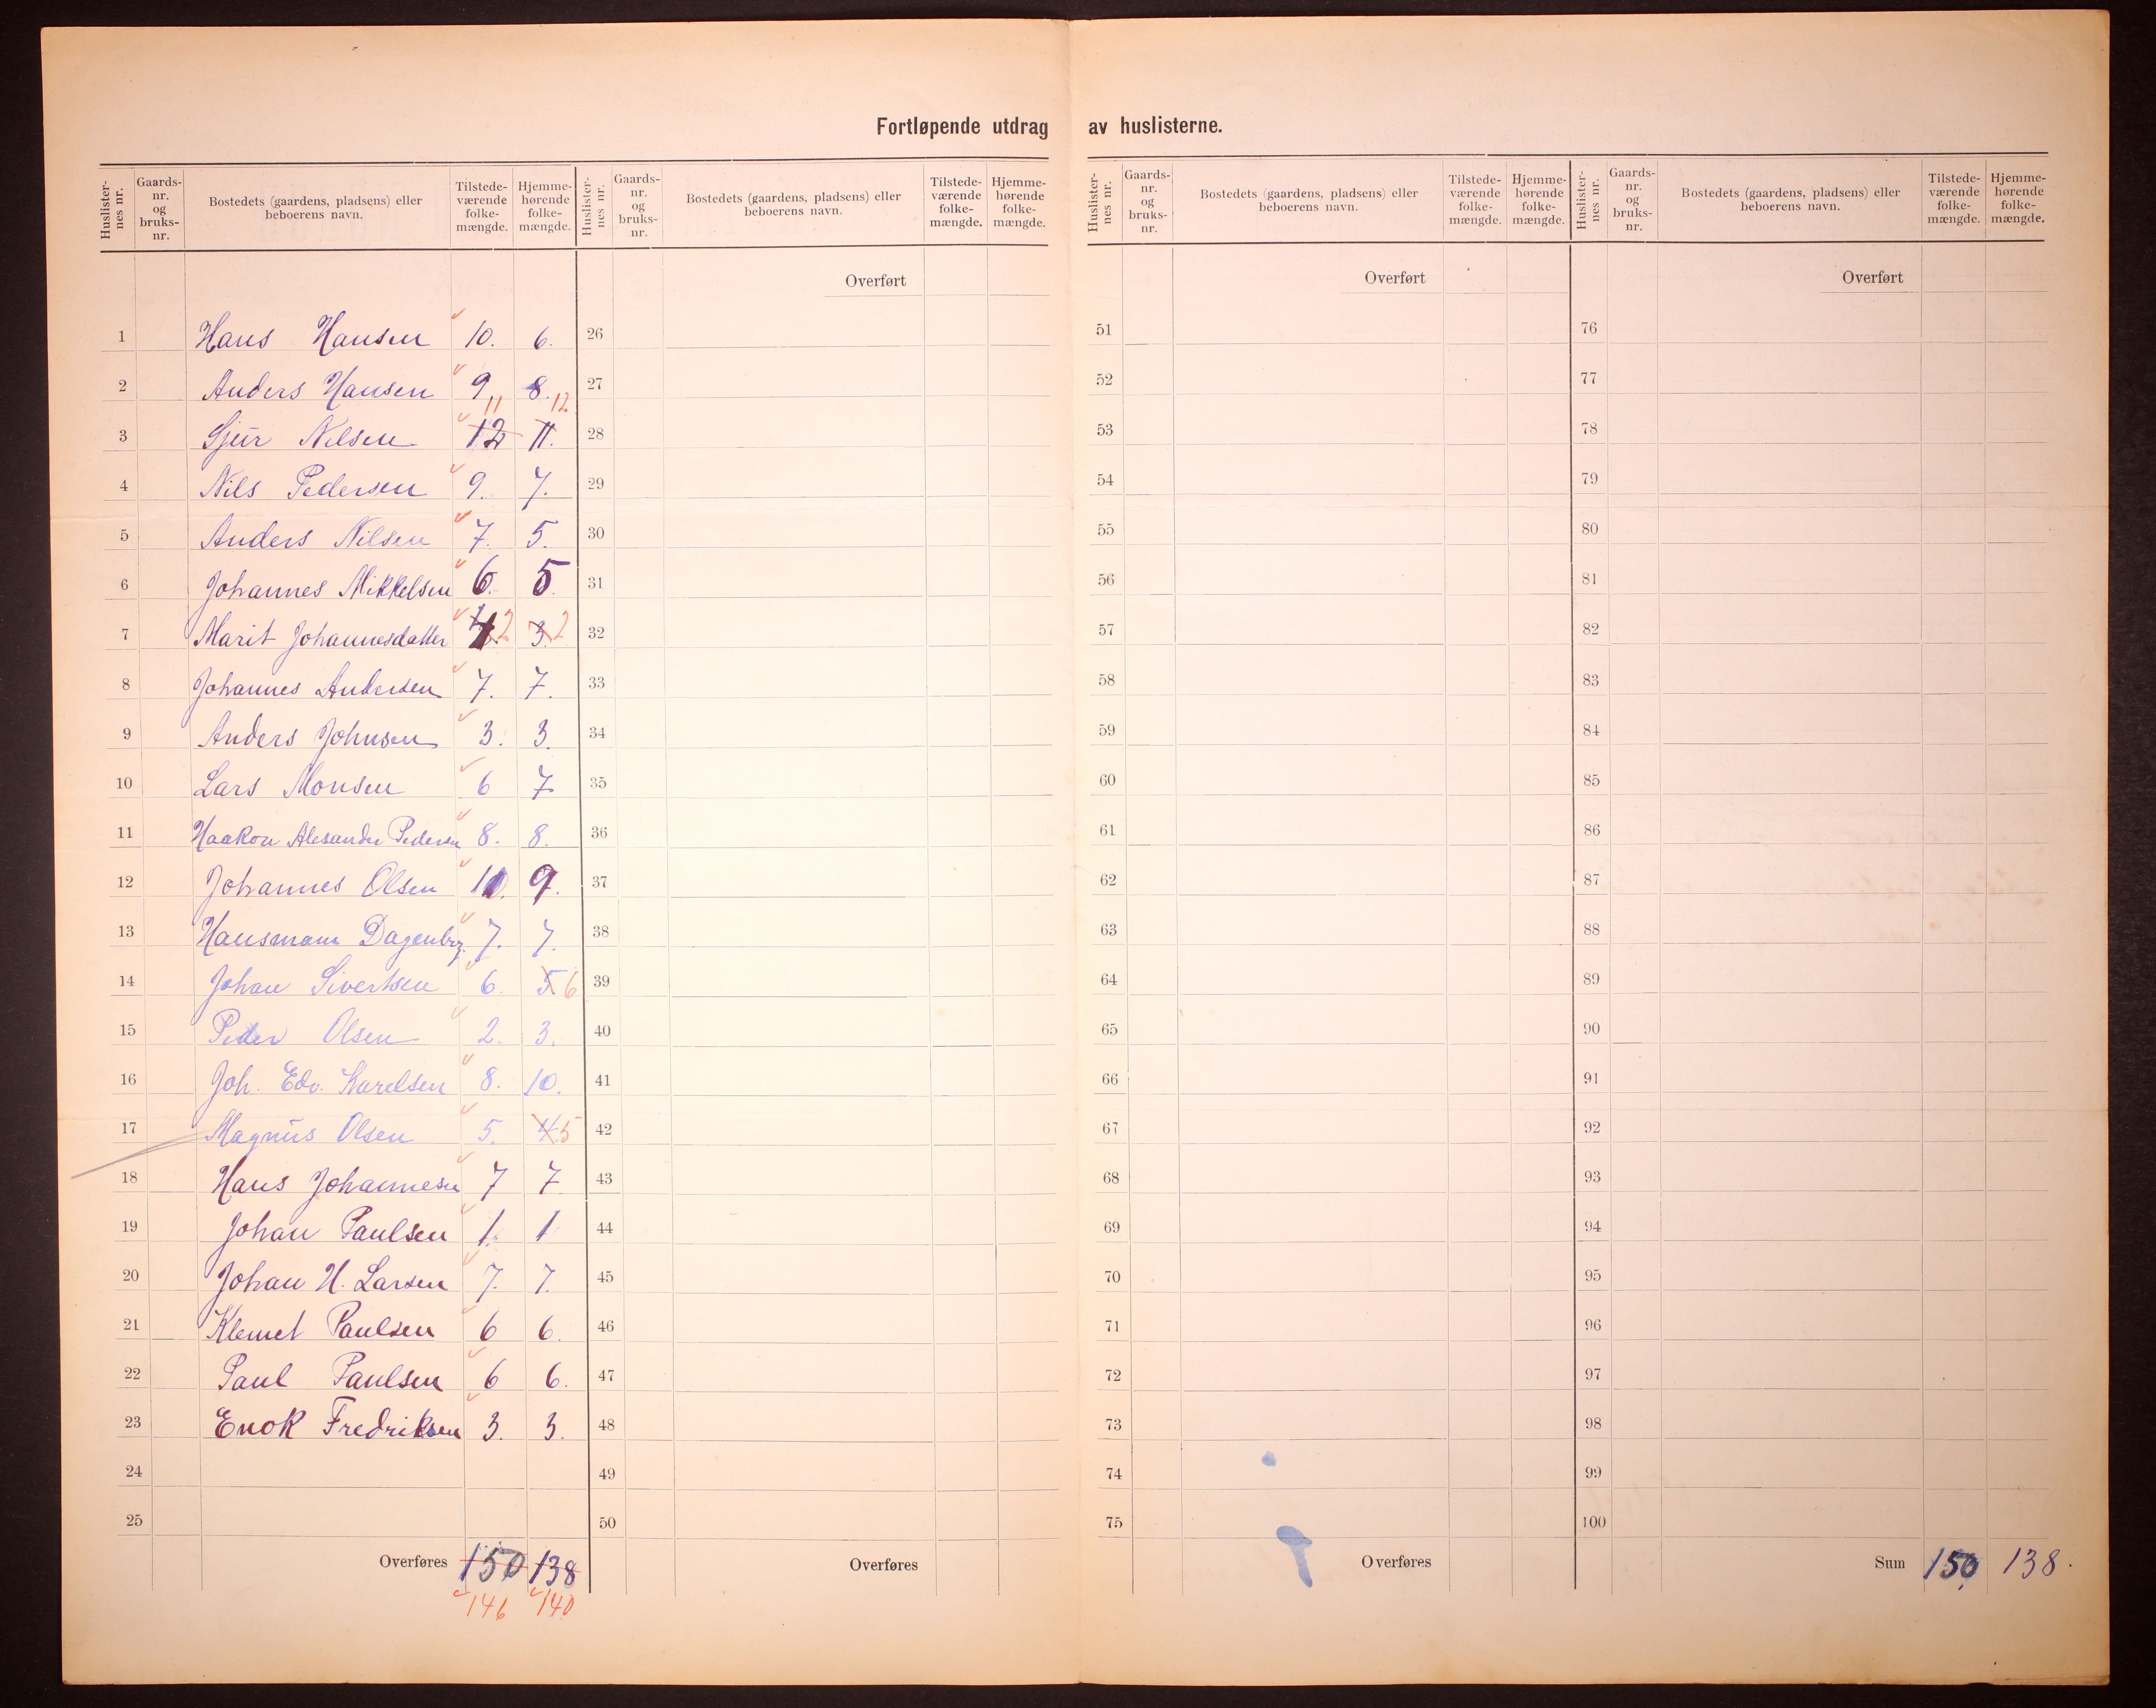 Fortløpende utdrag av huslisterne.
Huslister-nes nr. Gaards-nr. og bruks-nr. Bostedets (gaardens, pladsens) eller beboerens navn. Tilstede-værende folke-mængde. Hjemme-hørende folke-mængde.
1 Hans Hansen 10. 6.
2 Anders Hansen 9 8.
11 12
3 Sjur Nilsen 12 11.
4 Nils Pedersen 9. 7.
5 Anders Nilsen 7. 5.
6 Johannes Mikkelsen 6. 5.
7 Marit Johannesdatter 4 2 3. 2
8 Johannes Andersen 7. 7.
9 Anders Johnsen 3. 3.
10 Lars Monsen 6 7
11 Haakon Alesander Pedersen 8. 8.
12 Johannes Olsen 10. 9.
13 Hausmann Dagenbrg. 7. 7.
14 Johan Sivertsen 6. 5 6
15 Peder Olsen 2. 3.
16 Joh. Edv. Karelsen 8. 10.
17 Magnus Olsen 5. 4. 5
18 Hans Johannesen 7 7
19 Johan Paulsen 1. 1
20 Johan H. Larsen 7. 7.
21 Klemet Paulsen 6 6.
22 Paul Paulsen 6 6.
23 Enok Fredriksen 3. 3.
24
25
Overføres 150 138
146 140
Huslister-nes nr. Gaards-nr. og bruks-nr. Bostedets (gaardens, pladsens) eller beboerens navn. Tilstede-værende folke-mængde. Hjemme-hørende folke-mængde.
Overført
26
27
28
29
30
31
32
33
34
35
36
37
38
39
40
41
42
43
44
45
46
47
48
49
50
Overføres
Huslister-nes nr. Gaards-nr. og bruks-nr. Bostedets (gaardens, pladsens) eller beboerens navn. Tilstede-værende folke-mængde. Hjemme-hørende folke-mængde.
Overført
51
52
53
54
55
56
57
58
59
60
61
62
63
64
65
66
67
68
69
70
71
72
73
74
75
Overføres
Huslister-nes nr. Gaards-nr. og bruks-nr. Bostedets (gaardens, pladsens) eller beboerens navn. Tilstede-værende folke-mængde. Hjemme-hørende folke-mængde.
Overført
76
77
78
79
80
81
82
83
84
85
86
87
88
89
90
91
92
93
94
95
96
97
98
99
100
Sum 150 138.